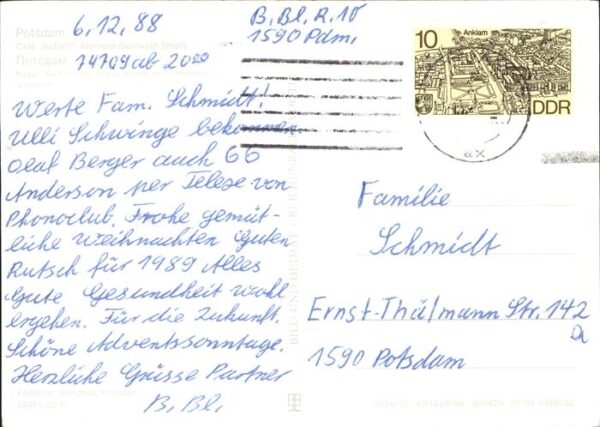 Potsdam
6.12.88
Café „Babett“, Klement-Gottwald-Straße
Потсдам
74709ab 20
B. Bl. R. 10
1590 Pdm.
10 Anklam
DDR
Werte Fam. Schmidt!
Ulli Schwinge bekommen
Olaf Berger auch G G
Anderson per
von
Phonoclub. Frohe gemüt-
liche Weihnachten Guten
Rutsch für 1989 Alles
Gute Gesundheit wohl
ergehen. Für die Zukunft.
Schöne Adventssonntage.
Herzliche Grüsse Partner
B. Bl.
Familie
Schmidt
Ernst-Thälmann Str. 142
1590 Potsdam
BILD UND HEIMAT